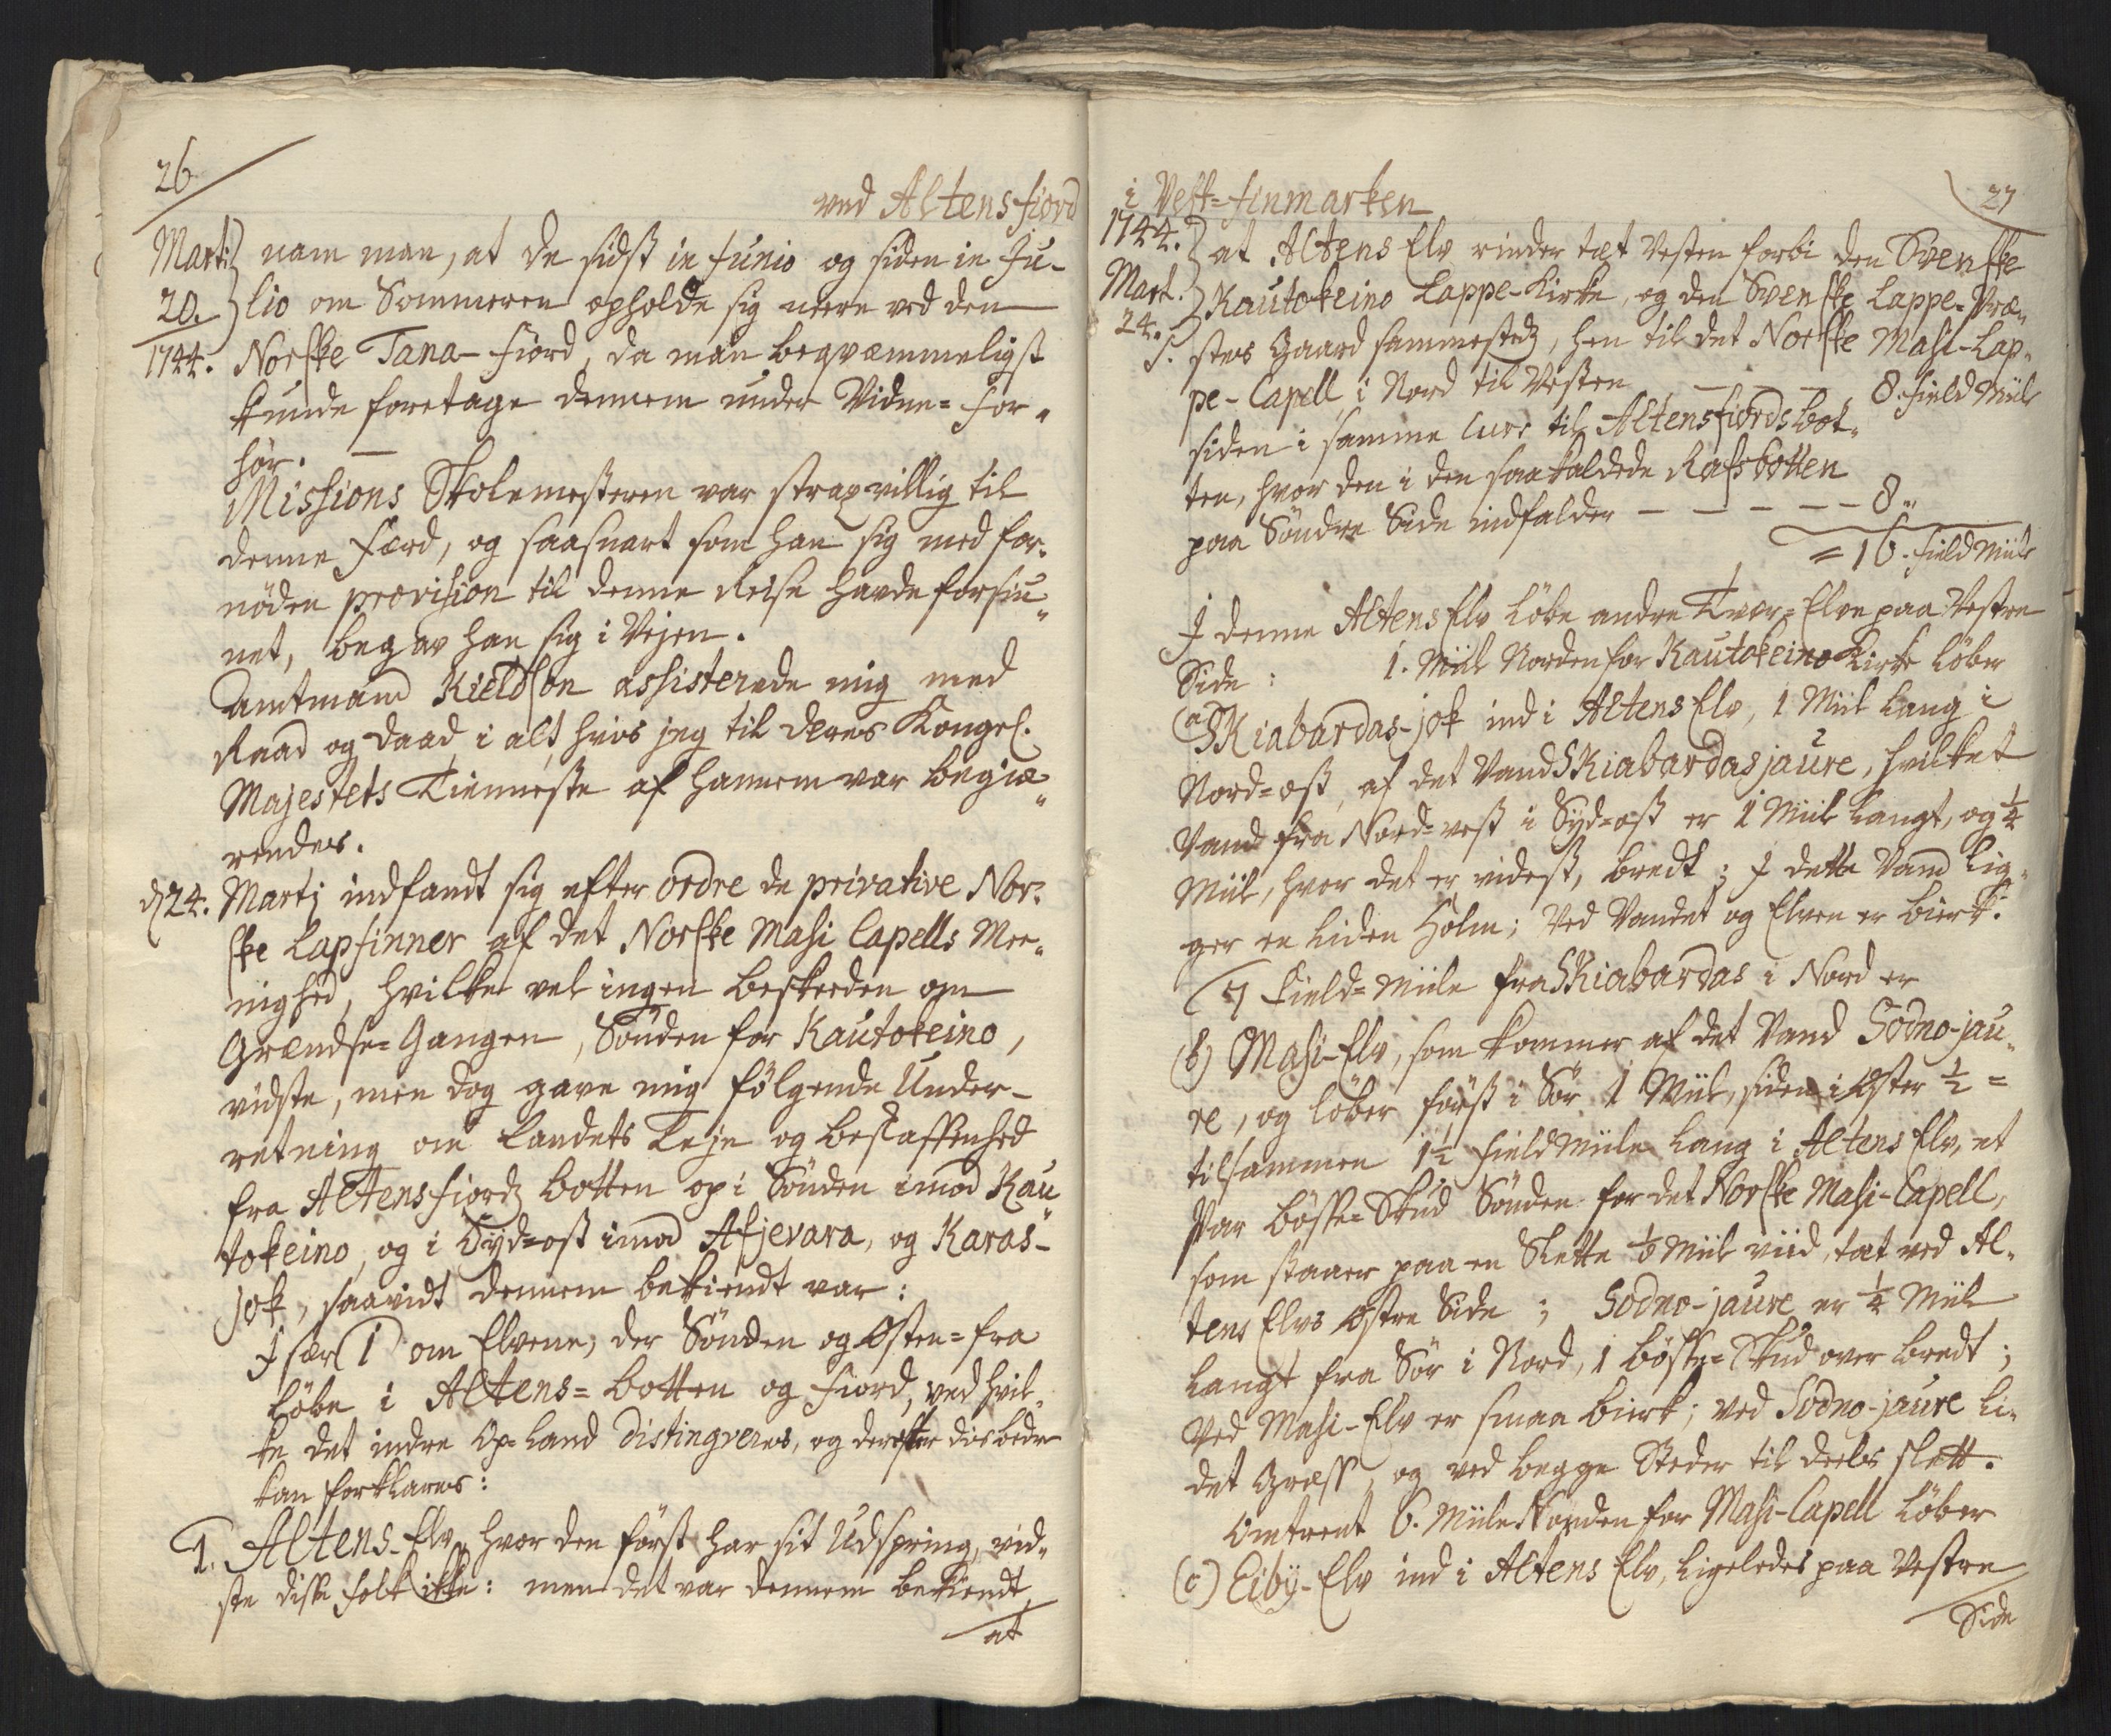 26
ved Altensfiord
Martj nam man, at de sidst in Junio og siden in Ju-
20. lio om Sommeren opholde sig neere ved den
1744. Norske Tana-Fiord, da man beqvæmmeligst
kunde foretage dennem under Vidne-For-
hör. —
Missions Skolemesteren var strax villig til
denne Færd, og saasnart som han sig med for-
nöden provision til denne Reise havde forsiu-
net, begav han sig i Vejen.
Amtmand Kieldson assisterede mig med
Raad og Daad i alt hvis jeg til Deres Kongel.
Majestets Tienneste af hannem var begiæ-
rendes.
d 24. Martj indfandt sig efter ordre de privative Nor-
ske Lapfinner af det Norske Masi Capells Mee-
nighed, hvilke vel ingen beskeeden om
Grændse-Gangen, Sönden for Kautokeino,
vidste, men dog gave mig fölgende Under-
retning om Landets Leje og beskaffenhed
fra Altensfiords botten op i Sönden imod Kau-
tokeino, og i Syd-ost imod Afjevara, og Karas-
jok, saavidt dennem bekiendt var:
Især 1 om Elvene, der Sönden og Osten-fra
löbe i Altens-botten og Fiord, ved hvil-
ke det indre Op-Land distingveres, og derefter dis bedre
kan forklares:
1. Altens-Elv, hvor den först har sit Udspring, vid-
ste disse folk ikke: men det var dennem bekiendt
at
27
i Vest-Finmarken
1744. at Altens Elv rinder tæt Vesten forbi den Svenske
Mart. Kautokeino Lappe-Kirke, og den Svenske Lappe-Præ-
24. sters Gaard sammesteds, hen til det Norske Masi-Lap-
pe-Capell i Nord til Vesten — — — 8. Field Miile
siden i samme Curs til Altensfiords bot-
ten, hvor den i den saakaldede Rafsbotten
paa Söndre Side indfalder — — — — — 8..
= 16. Field Miile
I denne Altens Elv löbe andre Tvær-Elve paa Vestre
Side: 1. Miil Norden for Kautokeino Kirke löber
(a) Skiabardas-jok ind i Altens Elv, 1 Miil lang i
Nord-ost, af det Vand Skiabardasjaure, hvilket
Vand fra Nord-vest i Syd-ost er 1 Miil langt, og 1/4
Miil, hvor det er videst, bredt; I dette Vand lig-
ger en liden Holm; Ved Vandet og Elven er birk.
7 Field-Miile fra Skiabardas i Nord er
(b) Masi-Elv, som kommer af det Vand Sodno-jau-
re, og löber först i Sör 1 Miil, siden i Oster 1/2 =
tilsammen 1 1/2 Field Miile lang i Altens Elv, et
Par bösse-Skud Sönden for det Norske Masi-Capell,
som staaer paa en Slette 1/8 Miil viid, tæt ved Al-
tens Elvs Ostre Side; Sodno-jaure er 1/4 Miil
langt fra Sör i Nord, 1 bösse-Skud over bredt;
Ved Masi-Elv er smaa birk; ved Sodno-jaure li-
det Græss, og ved begge Steder til deels slett.
Omtrent 6. Miile Norden for Masi-Capell löber
(c) Eiby-Elv ind i Altens Elv, ligeledes paa Vestre
Side